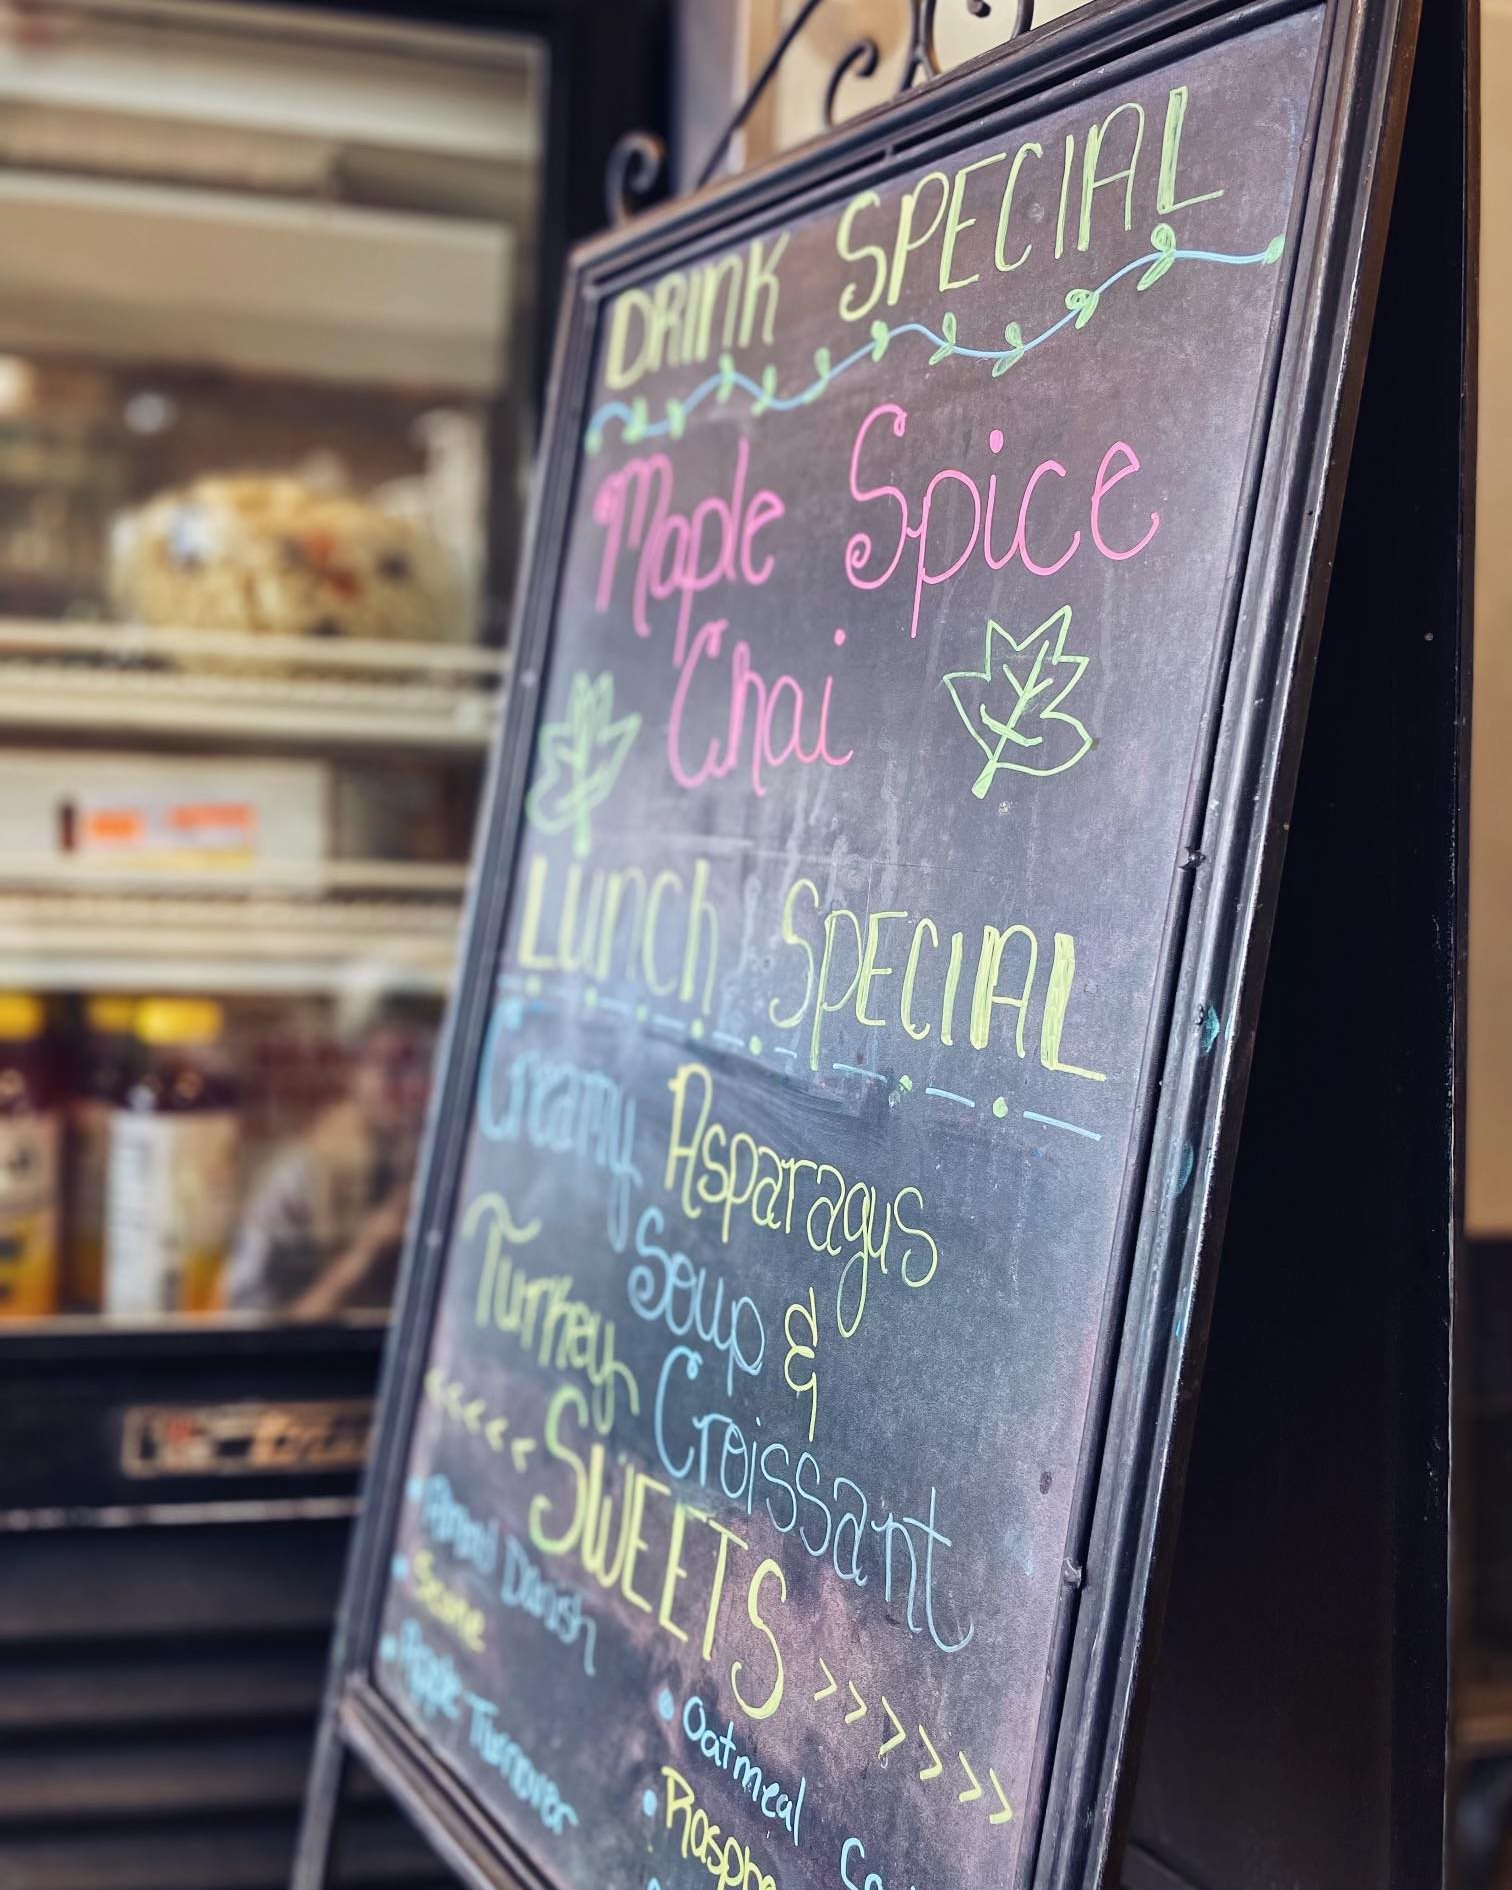 DRINK SPECIAL
Maple Spice
Chai
Lunch SPECIAL
Creamy Asparagus
Soup &
Turkey Croissant
<<<< SWEETS >>>>>>
• Danish
• Scone
• Apple Turnover
• Oatmeal